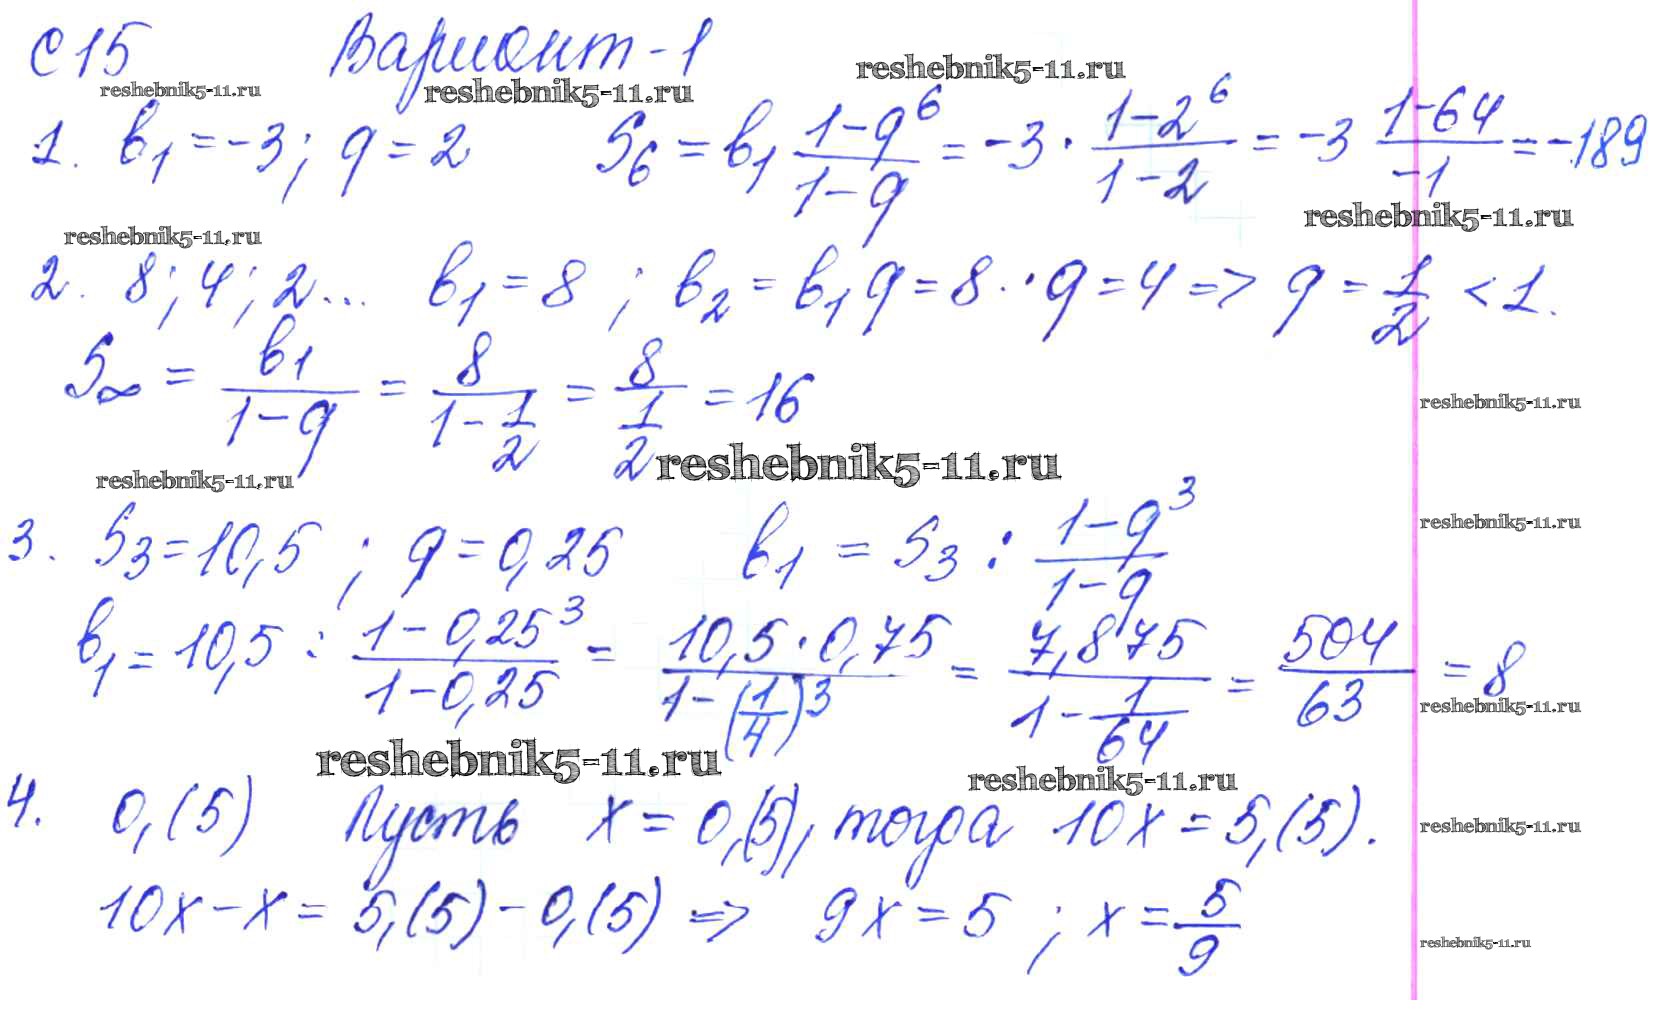 С 15 Вариант - 1
reshebnik5-11.ru reshebnik5-11.ru reshebnik5-11.ru
1. b₁ = -3; q = 2 S₆ = b₁ (1-q⁶)/(1-q) = -3 · (1-2⁶)/(1-2) = -3 (1-64)/(-1) = -189
reshebnik5-11.ru reshebnik5-11.ru
2. 8; 4; 2... b₁ = 8 ; b₂ = b₁q = 8 · q = 4 => q = 1/2 < 1.
S∞ = b₁/(1-q) = 8/(1-1/2) = 8/(1/2) = 16
reshebnik5-11.ru
reshebnik5-11.ru reshebnik5-11.ru
3. S₃ = 10,5 ; q = 0,25 b₁ = S₃ : (1-q³)/(1-q)
reshebnik5-11.ru
b₁ = 10,5 : (1-0,25³)/(1-0,25) = (10,5 · 0,75)/(1-(1/4)³) = 7,875/(1-1/64) = 504/63 = 8
reshebnik5-11.ru
reshebnik5-11.ru reshebnik5-11.ru
4. 0,(5) Пусть x = 0,(5), тогда 10x = 5,(5).
reshebnik5-11.ru
10x - x = 5,(5) - 0,(5) => 9x = 5 ; x = 5/9
reshebnik5-11.ru